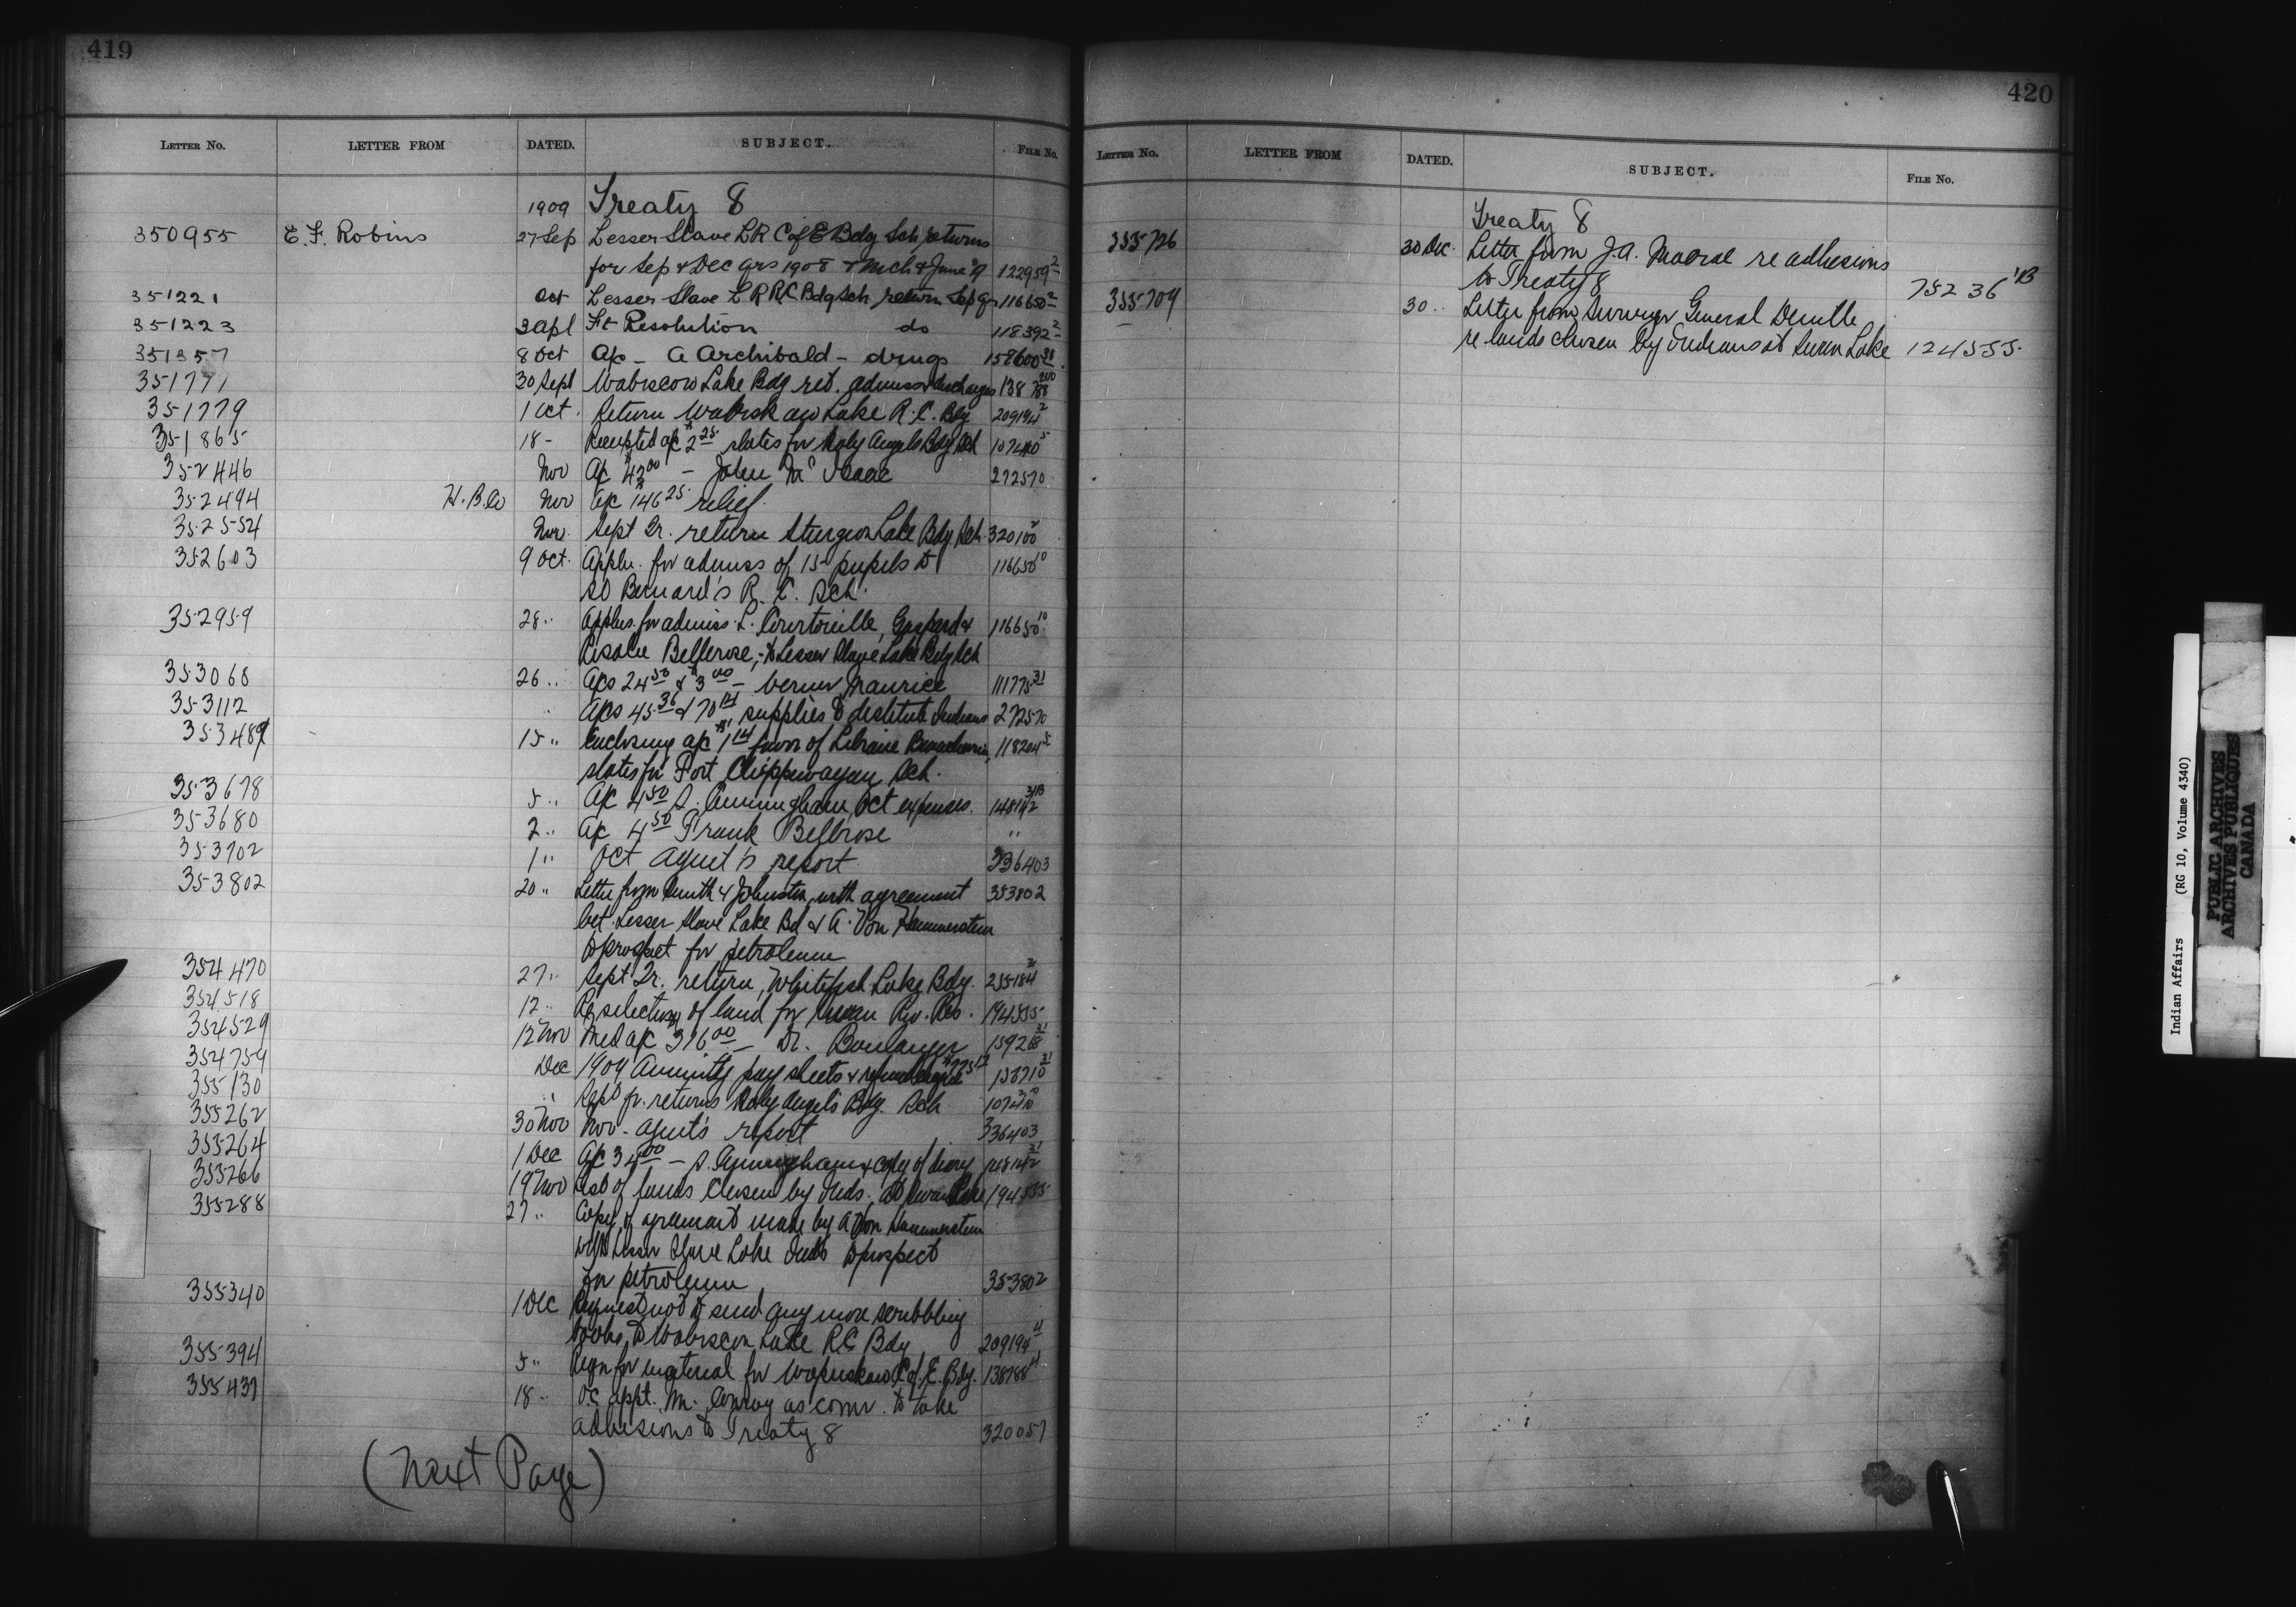 419
LETTER No. LETTER FROM DATED. SUBJECT. FILE No.
1909 Treaty 8
350955 E. F. Robins 27 Sep Lesser Slave L R C of E Bdg Sch returns
for Sep & Dec qrs 1908 & Mch & June '9 122959 2
351221 Oct Lesser Slave L R R C Bdg Sch return Sep qr 116650 2
351223 3 Apl Ft Resolution do 118392 2
351357 8 Oct A/c - A Archibald - drugs 158600
351771 30 Sept Wabiscow Lake Bdg ret. admiss & discharges 138788
351779 1 Oct. Return Wabiskaw Lake R. C. Bdg 209194 2
351865 18 - Receipted a/c $2 25 slates for Holy Angels Bdg Sch 107480 5
352446 Nov A/c $43 00 - John McIsaac 272570
352494 H. B. Co Nov A/c $146 25 relief
352554 Nov. Sept Qr. return Sturgeon Lake Bdg Sch. 320100
352603 9 Oct. Appln. for admiss of 15 pupils to 116650 10
St Bernard's R. C. Sch.
352959 28 " Applns. for admiss. L. Courtoreille, Gaspard & 116650 10
Bellerose, - to Lesser Slave Lake Bdg Sch
353068 26 " A/cs 24 50 & $3 00 - Maurice 111775 31
353112 " A/cs 45 36 & 70 14 supplies to destitute Indians 272570
353489 15 " Enclosing a/c $1 14 favor of Librairie Beauchemin, 118204 5
slates for Fort Chippewayan Sch.
353678 5 " A/c 4 50 S. Cunningham, Oct expenses. 148142
353680 2 " A/c 4 50 Frank Bellrose "
353702 1 " Oct agent's report 336403
353802 20 " Letter from Smith & Johnston with agreement 353802
bet. Lesser Slave Lake Bd & A. Von Hammerstein
to prospect for petroleum
354470 27 " Sept Qr. return, Whitefish Lake Bdg. 235184
354518 12 " Re selection of land for Swan Riv. Res. 194535
354529 12 Nov Med a/c 376 00 - Dr. Boulanger 159268 31
354759 Dec 1909 Annuity pay sheets & refund cheque 158710 31
355130 " Sept qr. returns Holy Angels Bdg. Sch
355262 30 Nov Nov - agent's report 336403
355264 1 Dec A/c 34 00 - S. Cunningham & copy of diary 148142 31
355266 19 Nov List of lands chosen by Inds. at Swan Lake 194535
355288 27 " Copy of agreement made by A Von Hammerstein
with Lesser Slave Lake Inds to prospect
for petroleum 353802
355340 1 Dec Request not to send any more scribbling
books to Wabiscow Lake R C Bdg 209194 4
355394 5 " Reqn for material for Wapuskaw C of E. Bdg. 138788 4
355437 18 " O. C. appt. Mr. Conroy as comr. to take
adhesions to Treaty 8 320057
(Next Page)
420
LETTER No. LETTER FROM DATED. SUBJECT. FILE No.
Treaty 8
355726 30 Dec. Letter from J. A. Macrae re adhesions
to Treaty 8 75236 1B
355709 30 " Letter from Surveyor General Deville
re lands chosen by Indians at Swan Lake 124555
Indian Affairs (RG 10, Volume 4340)
PUBLIC ARCHIVES
ARCHIVES PUBLIQUES
CANADA